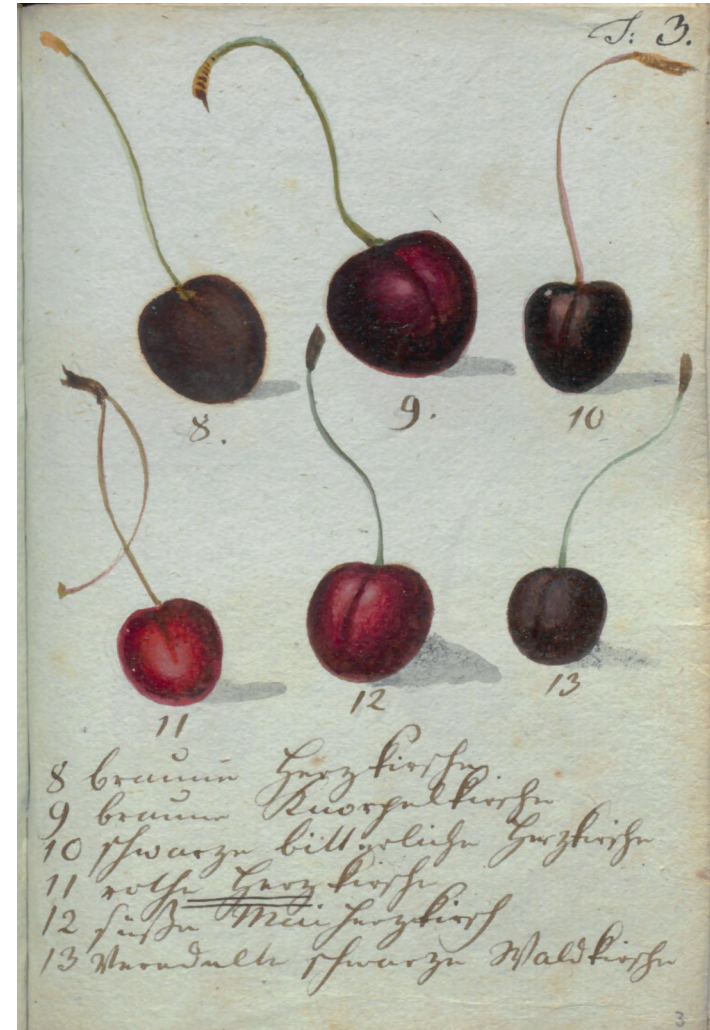 T: 3.
8.
9.
10
11
12
13
8 braune Herzkirsche
9 braune Knorpelkirsche
10 schwarze bitterliche Herzkirsche
11 rothe Herzkirsche
12 süße Mai Herzkirsch
13 Veredelte schwarze Waldkirsche
3